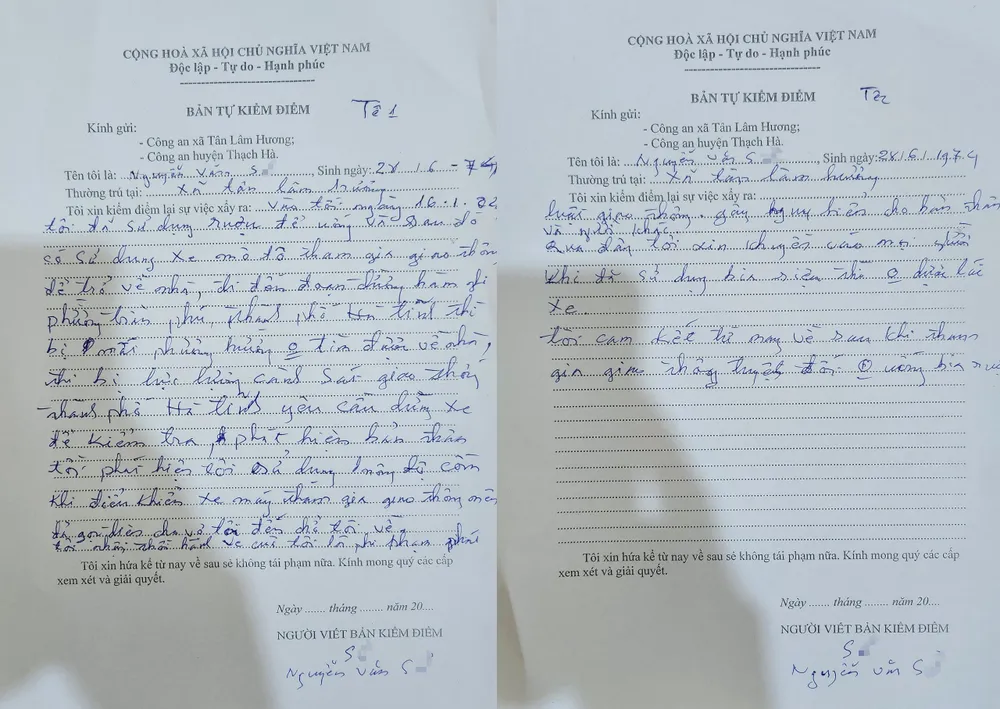 CỘNG HOÀ XÃ HỘI CHỦ NGHĨA VIỆT NAM
Độc lập - Tự do - Hạnh phúc
BẢN TỰ KIỂM ĐIỂM
Tờ 1
Kính gửi:
- Công an xã Tân Lâm Hương;
- Công an huyện Thạch Hà.
Tên tôi là: Nguyễn Văn S Sinh ngày: 28/6-74
Thường trú tại: Xã tân lâm hương
Tôi xin kiểm điểm lại sự việc xẩy ra: Vào tối ngày 16.1.
tôi đã sử dụng rượu để uống và sau đó
có sử dụng xe mô tô tham gia giao thông
để trở về nhà, đi đến đoạn đường hàm nghi
phường trần phú, thành phố Hà tĩnh thì
bị mất phương hướng o tìm được về nhà,
thì bị lực lượng cảnh sát giao thông
thành phố Hà tĩnh yêu cầu dừng xe
để kiểm tra, phát hiện bản thân
tôi phát hiện lỗi sử dụng nồng độ cồn
khi điều khiển xe máy tham gia giao thông nên
đã gọi điện cho vợ tôi đến chở tôi về
tôi nhận thức hành vi của tôi là vi phạm
Tôi xin hứa kể từ nay về sau sẻ không tái phạm nữa. Kính mong quý các cấp
xem xét và giải quyết.
Ngày ....... tháng ........ năm 20....
NGƯỜI VIẾT BẢN KIỂM ĐIỂM
S
Nguyễn Văn S
CỘNG HOÀ XÃ HỘI CHỦ NGHĨA VIỆT NAM
Độc lập - Tự do - Hạnh phúc
BẢN TỰ KIỂM ĐIỂM
Kính gửi:
- Công an xã Tân Lâm Hương;
- Công an huyện Thạch Hà.
Tên tôi là: Nguyễn Văn S Sinh ngày: 28/6/1974
Thường trú tại: Xã tân lâm hương
Tôi xin kiểm điểm lại sự việc xẩy ra:
luật giao thông. gây nguy hiểm cho bản thân
và người khác.
Qua đây tôi xin khuyên cáo mọi người
khi đã sử dụng bia rượu thì o được lái
xe.
tôi cam kết từ nay về sau khi tham
gia giao thông tuyệt đối o uống bia
Tôi xin hứa kể từ nay về sau sẻ không tái phạm nữa. Kính mong quý các cấp
xem xét và giải quyết.
Ngày ....... tháng ........ năm 20....
NGƯỜI VIẾT BẢN KIỂM ĐIỂM
S
Nguyễn Văn S